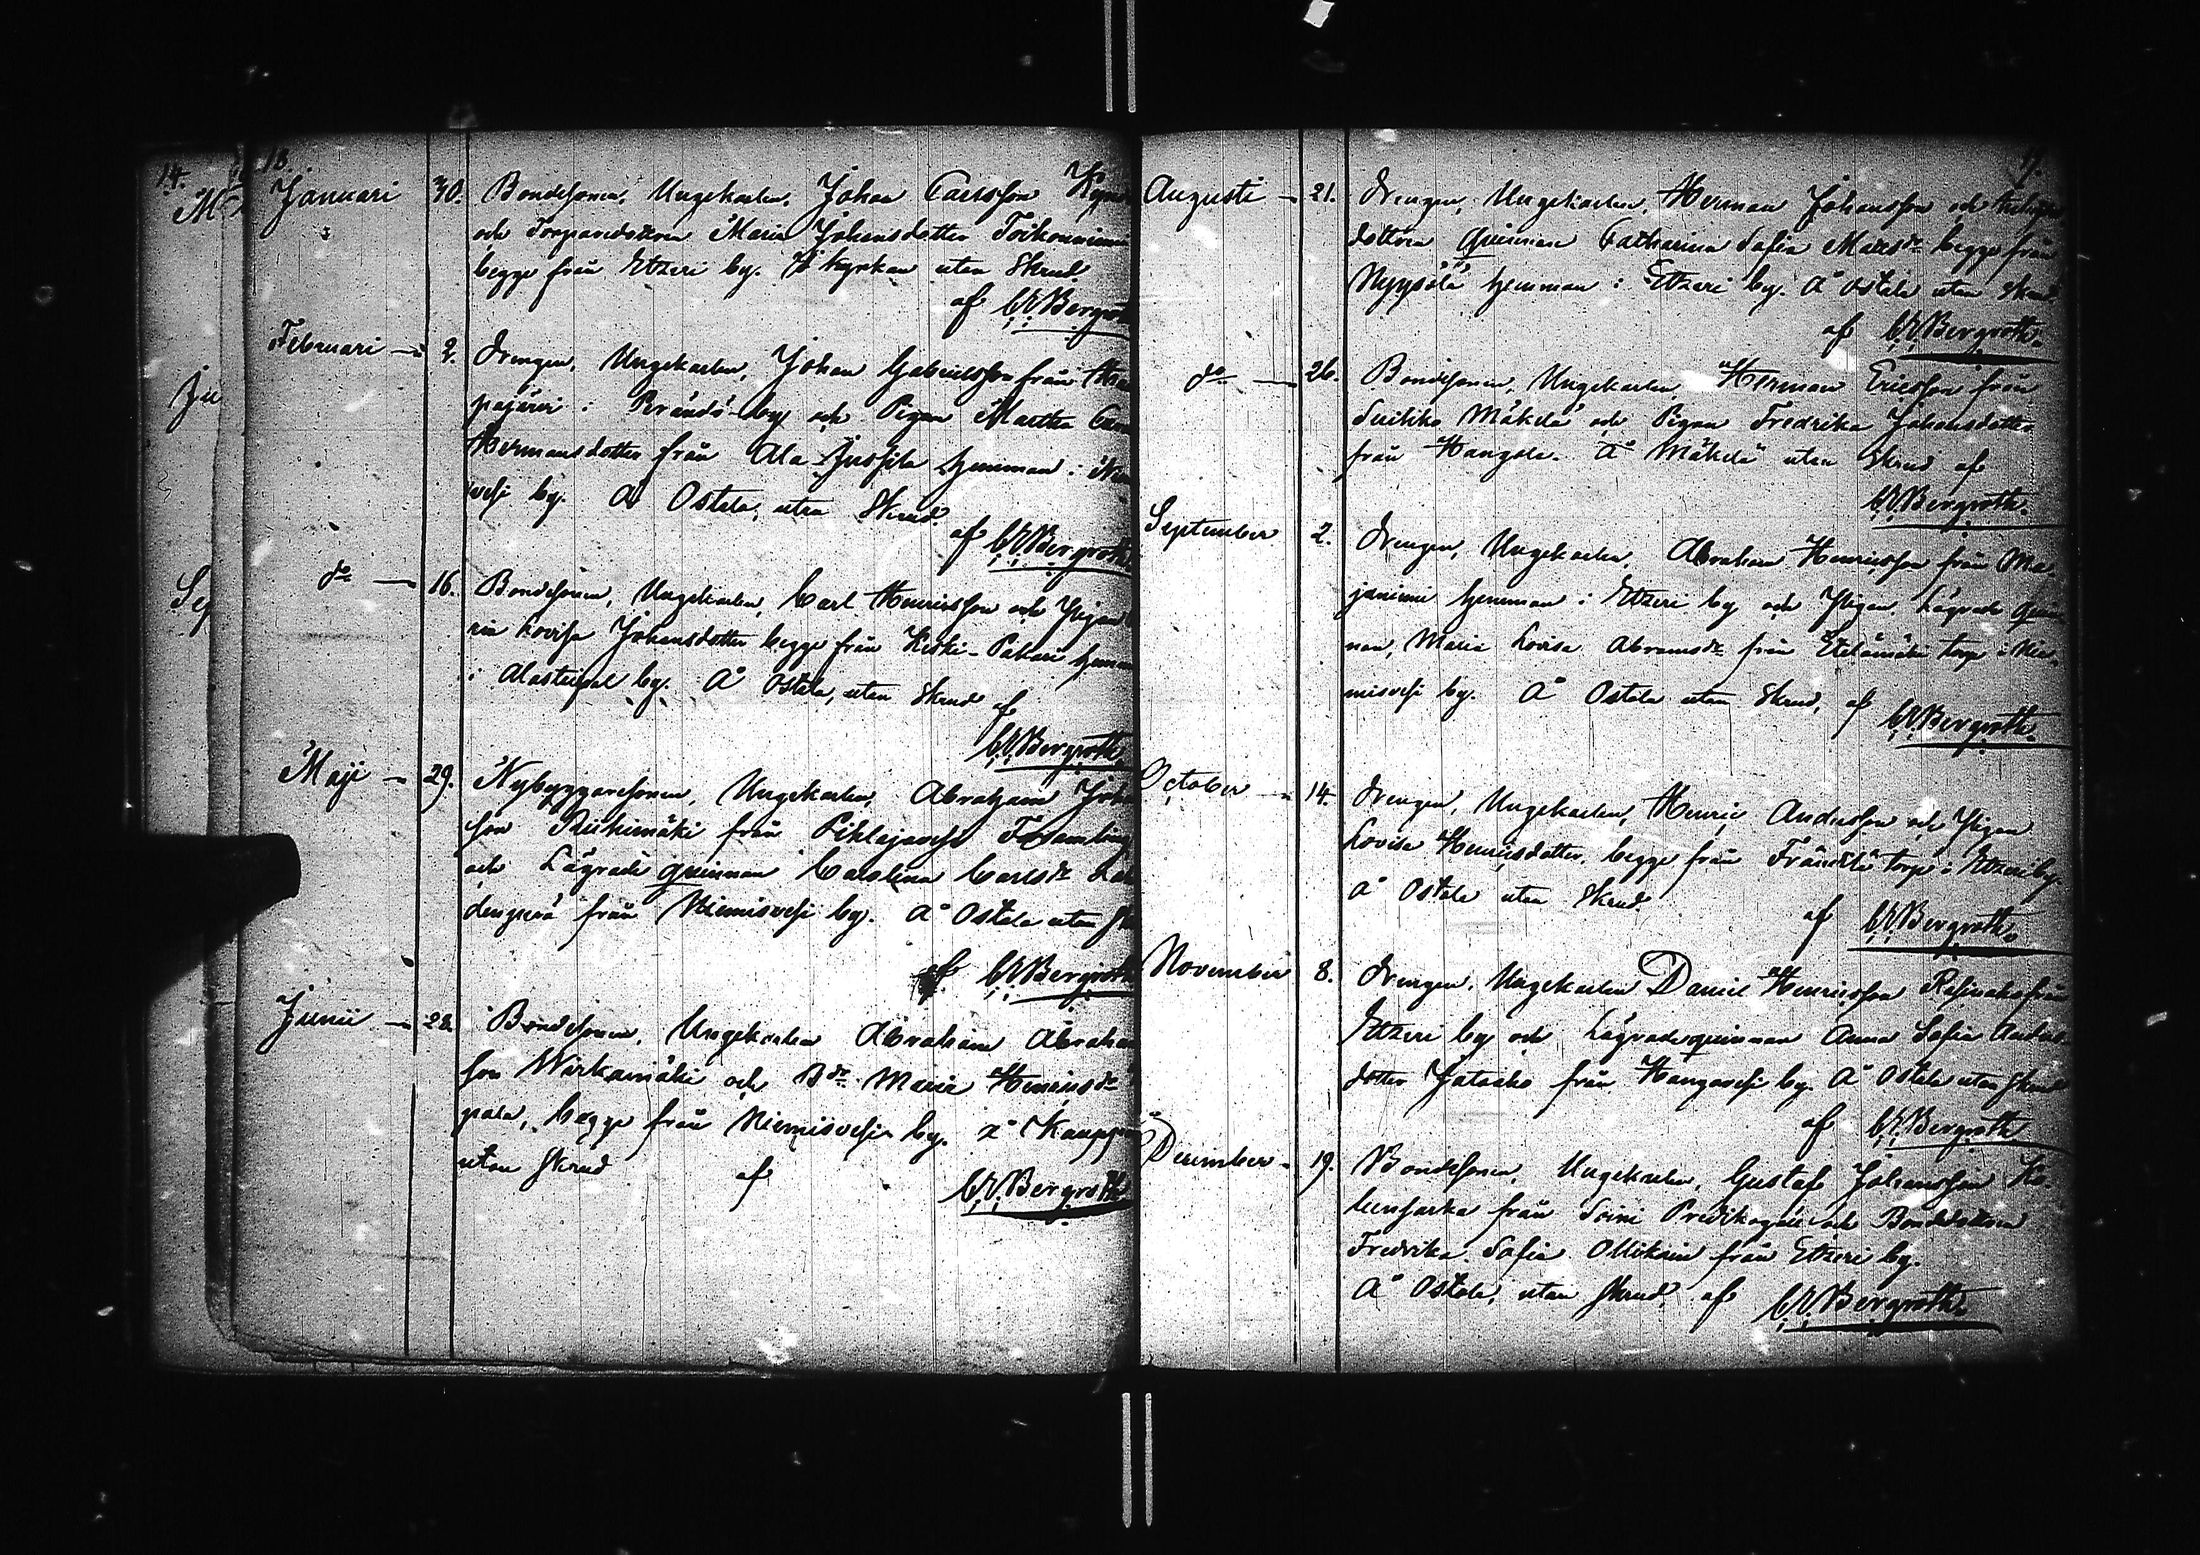 14.
18.
Januari 30. Bondesonen, Ungekarlen, Johan Carlsson
och Torparedottren Maria Johansdotter
begge från Etzeri by. I kyrkan utan Skrud
af C.V. Bergroth
Februari — 2. Drengen, Ungekarlen, Johan Gabrielsson från
pajärvi i Peränd by och Pigan Martha
Hermansdotter från Ala Jussila hemman i
vesi by. Å Ostola, utan Skrud.
af C.V. Bergroth
do — 16. Bondesonen, Ungekarlen, Carl Henricsson och Pigan
Lovisa Johansdotter begge från Keski-Pakari hemman
i Alastaipal by. Å Ostola, utan Skrud
af
C.V. Bergroth.
Maji — 29. Nybyggaresonen, Ungekarlen, Abraham Joh
son Riihimäki från Pihlajavesi Församling
och Lägrade quinnan Carolina Carlsdr
från Niemisvesi by. Å Ostola utan
af C.V. Bergroth
Junii — 28. Bondesonen, Ungekarlen Abraham Abraham
son Wirkamäki och Bdr Maria Henricsdr
begge från Niemisvesi by. å
utan Skrud af C.V. Bergroth
Augusti — 21. Drengen, Ungekarlen, Herman Johansson och
dottren quinnan Catharina Sofia Matsdr begge från
Nyysölä hemman i Etzeri by. Å Ostola utan Skrud.
af C.V. Bergroth.
do — 26. Bondesonen, Ungekarlen, Herman Ericsson från
Mäkelä och Pigan Fredrika Johansdotter
från Hangola. Å Mäkelä utan Skrud af
C.V. Bergroth.
September 2. Drengen, Ungekarlen, Abraham Henricsson från Ma-
janiemi hemman i Etzeri by och Pigan, Lägrade quin
nan, Maria Lovisa Abramsdr från Etelämäki torp i Nie-
misvesi by. Å Ostola utan Skrud, af C.V. Bergroth.
October — 14. Drengen, Ungekarlen, Henric Andersson och Pigan
Lovisa Henricsdotter, begge från Fräntilä torp i Etzeri by.
Å Ostola utan Skrud
af C.V. Bergroth.
November 8. Drengen, Ungekarlen Daniel Henricsson från
Etzeri by och Lägradequinnan Anna Sofia Anders-
dotter från Hangovesi by. Å Ostola utan Skrud
af C.V. Bergroth
December — 19. Bondesonen, Ungekarlen, Gustaf Johansson
från Soini Predikogäll och Bondedottren
Fredrika Sofia Ollikain från Etzeri by.
Å Ostola, utan Skrud, af C.V. Bergroth.